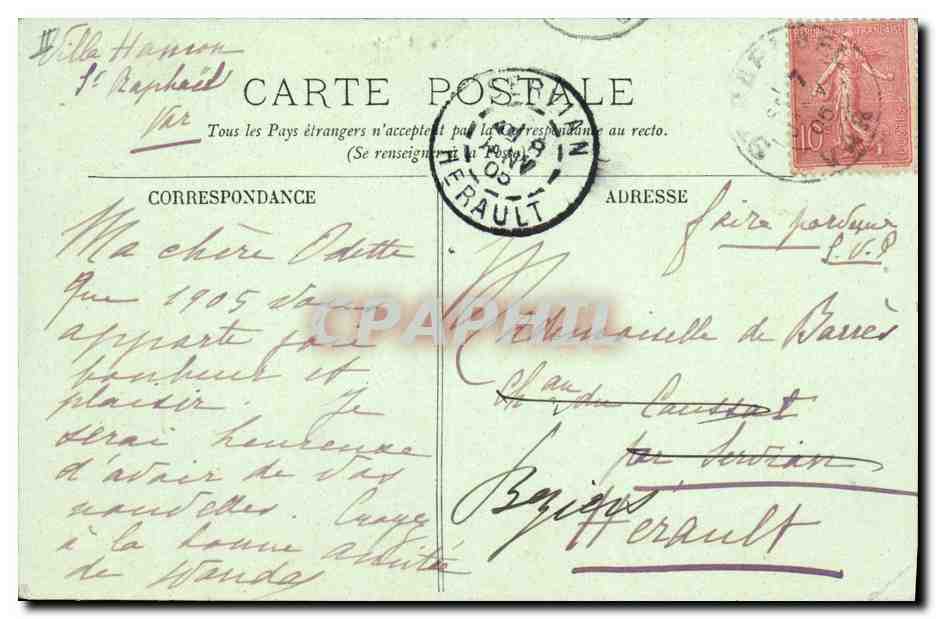 Villa Hanson
St Raphaël
Var
CARTE POSTALE
Tous les Pays étrangers n'acceptent pas la Correspondance au recto.
(Se renseigner à la Poste)
CORRESPONDANCE
Ma chère Odette
que 1905 vous
apporte joie
bonheur et
plaisir. Je
serai heureuse
d'avoir de vos
nouvelles. Croyez
à la bonne amitié
de Wanda
ADRESSE
faire
S.V.P
Mademoiselle de Barrès
Chau du Caussat
par Servian
Beziers
Hérault
SERVIAN
HERAULT
8
JANV
05
10
CPAPHIL